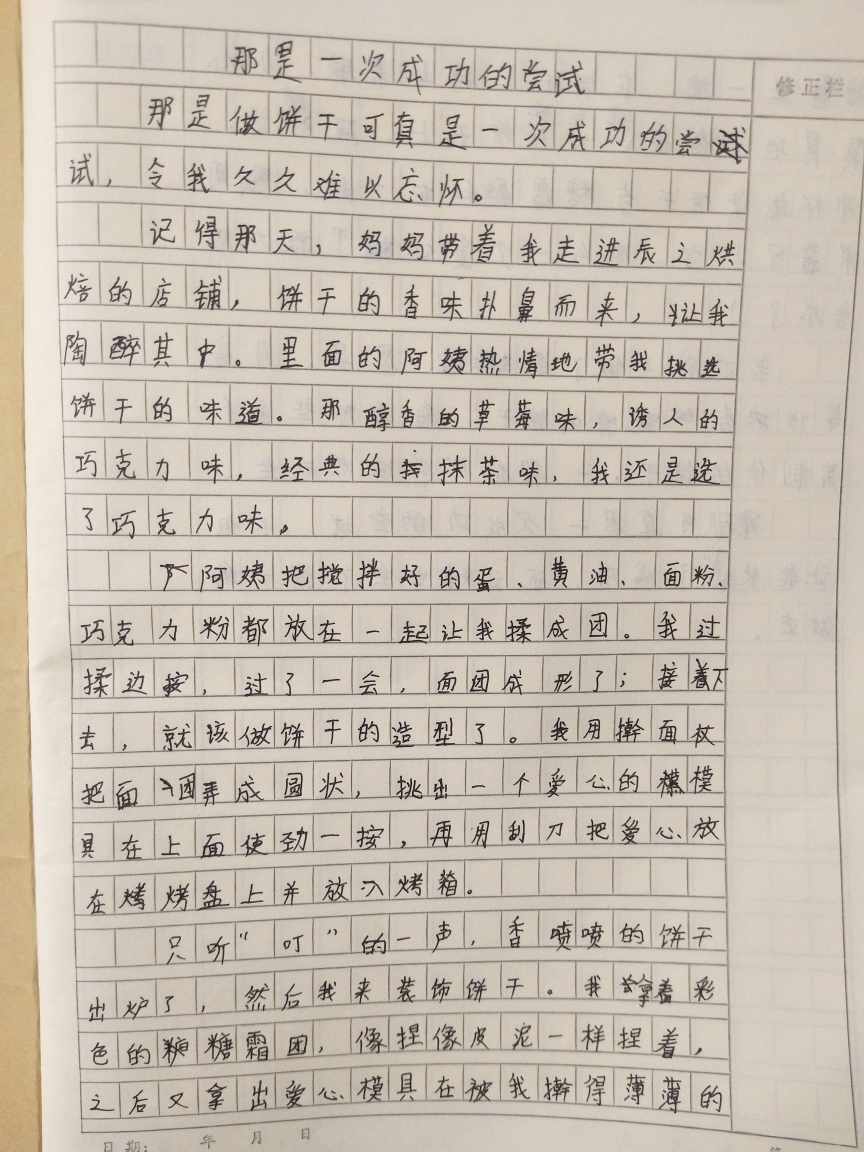 那是一次成功的尝试
修正栏
那是做饼干可真是一次成功的尝
试，令我久久难以忘怀。
记得那天，妈妈带着我走进辰之烘
焙的店铺，饼干的香味扑鼻而来，让我
陶醉其中。里面的阿姨热情地带我挑选
饼干的味道。那醇香的草莓味，诱人的
巧克力味，经典的抹茶味，我还是选
了巧克力味。
阿姨把搅拌好的蛋、黄油、面粉、
巧克力粉都放在一起让我揉成团。我过
揉边按，过了一会，面团成形了；接着下
去，就该做饼干的造型了。我用擀面杖
把面团弄成圆状，挑出一个爱心的模
具在上面使劲一按，再用刮刀把爱心放
在烤烤盘上并放入烤箱。
只听“叮”的一声，香喷喷的饼干
出炉了，然后我来装饰饼干。我拿着彩
色的糖霜团，像捏像皮泥一样捏着，
之后又拿出爱心模具在被我擀得薄薄的
日期： 年 月 日